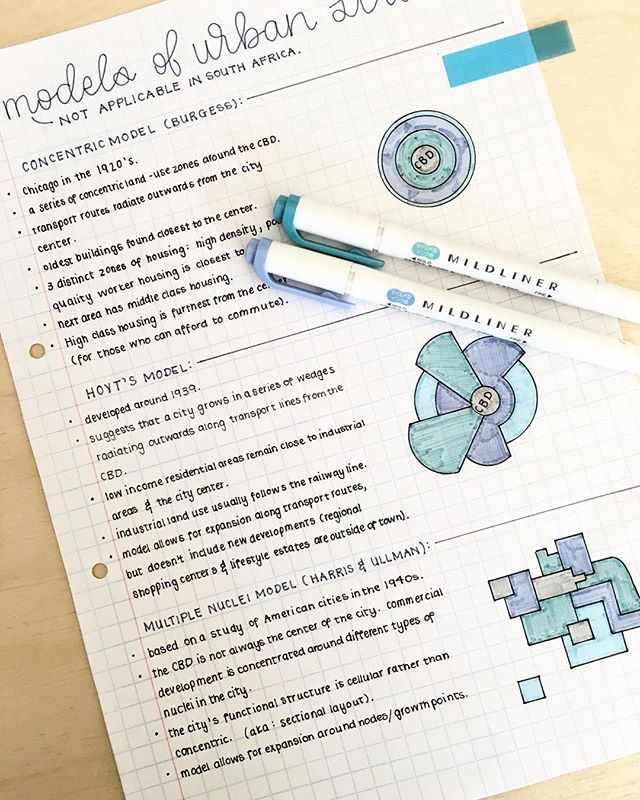 models of urban
NOT APPLICABLE IN SOUTH AFRICA.
CONCENTRIC MODEL (BURGESS):
• Chicago in the 1920's.
• a series of concentric land-use zones around the CBD.
• transport routes radiate outwards from the city
center.
• oldest buildings found closest to the center.
• 3 distinct zones of housing: high density,
quality worker housing is closest to
• next area has middle class housing.
• High class housing is furthest from the
(for those who can afford to commute).
CBD
MILDLINER
MILDLINER
HOYT'S MODEL:
• developed around 1939.
• suggests that a city grows in a series of wedges
radiating outwards along transport lines from the
CBD.
• low income residential areas remain close to industrial
areas & the city center.
• industrial land use usually follows the railway line.
• model allows for expansion along transport routes,
but doesn't include new developments (regional
shopping centers & lifestyle estates are outside of town).
CBD
MULTIPLE NUCLEI MODEL (HARRIS & ULLMAN):
• based on a study of American cities in the 1940s.
• the CBD is not always the center of the city. commercial
development is concentrated around different types of
nuclei in the city.
• the city's functional structure is cellular rather than
concentric. (aka: sectional layout).
• model allows for expansion around nodes/growth points.